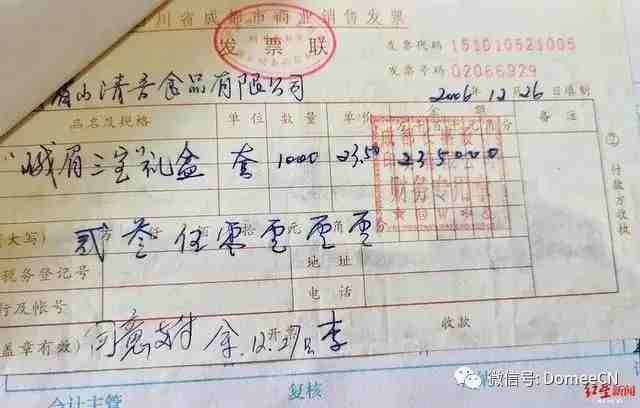 川省成都市商业销售发票
发票联
发票代码 151010521005
发票号码 02066929
眉山清音食品有限公司
2006年12月26日填制
品名及规格 单位 数量 单价 金额 备注
峨眉三宝礼盒 套 1000 23.50 2350000
财务专用章
②付款方收执
大写) 贰叁仟伍零零元零角零
税务登记号 地址
行及帐号 电话
盖章有效) 同意支付 余.12.27日 开票 李 收款
会计主管 复核
微信号: DomeeCN
红星新闻